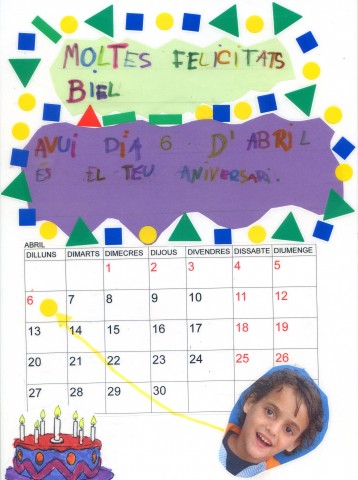 MOLTES FELICITATS
BIEL
AVUI DIA 6 D'ABRIL
ES EL TEU ANIVERSARI.
ABRIL
DILLUNS DIMARTS DIMECRES DIJOUS DIVENDRES DISSABTE DIUMENGE
1 2 3 4 5
6 7 8 9 10 11 12
13 14 15 16 17 18 19
20 21 22 23 24 25 26
27 28 29 30